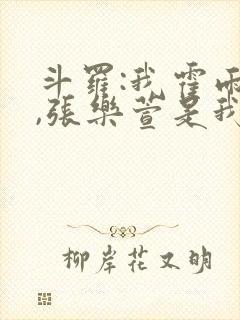 斗羅:我霍雨
,張樂萱是我
柳岸花又明